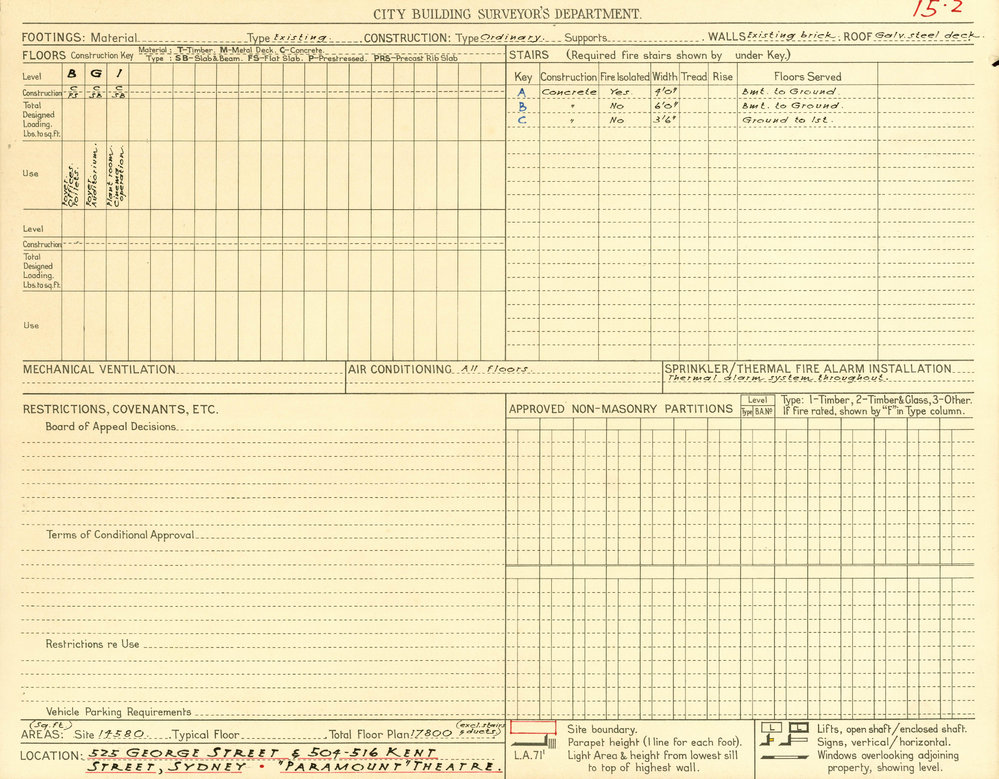 15.2
CITY BUILDING SURVEYOR'S DEPARTMENT.
FOOTINGS: Material Type Existing. CONSTRUCTION: Type Ordinary. Supports WALLS Existing brick. ROOF Galv. steel deck.
FLOORS Construction Key Material: T-Timber. M-Metal Deck. C-Concrete.
Type: SB-Slab & Beam. FS-Flat Slab. P-Prestressed. PRS-Precast Rib Slab
Level B G 1
Construction C C C
FS SB SB
Total
Designed
Loading.
Lbs. to sq. ft.
Use
Foyer Offices Toilets.
Foyer Auditorium.
Plant room. Cinema operation.
Level
Construction
Total
Designed
Loading.
Lbs. to sq. ft.
Use
STAIRS (Required fire stairs shown by under Key.)
Key Construction Fire Isolated Width Tread Rise Floors Served
A Concrete Yes. 4'0" Bmt. to Ground.
B " No 6'0" Bmt. to Ground.
C " No 3'6" Ground to 1st.
MECHANICAL VENTILATION
AIR CONDITIONING All floors.
SPRINKLER/THERMAL FIRE ALARM INSTALLATION
Thermal alarm system throughout.
RESTRICTIONS, COVENANTS, ETC.
Board of Appeal Decisions
Terms of Conditional Approval
Restrictions re Use
Vehicle Parking Requirements
APPROVED NON-MASONRY PARTITIONS
Level
Type B.A.Nº
Type: 1-Timber, 2-Timber & Glass, 3-Other.
If fire rated, shown by "F" in Type column.
(Sq. ft) (excl. stairs & ducts)
AREAS: Site 14580. Typical Floor Total Floor Plan 17800
LOCATION: 525 GEORGE STREET & 504-516 KENT
STREET, SYDNEY • "PARAMOUNT" THEATRE.
Site boundary.
Parapet height (1 line for each foot).
L.A. 71' Light Area & height from lowest sill
to top of highest wall.
Lifts, open shaft/enclosed shaft.
Signs, vertical/horizontal.
Windows overlooking adjoining
property, showing level.